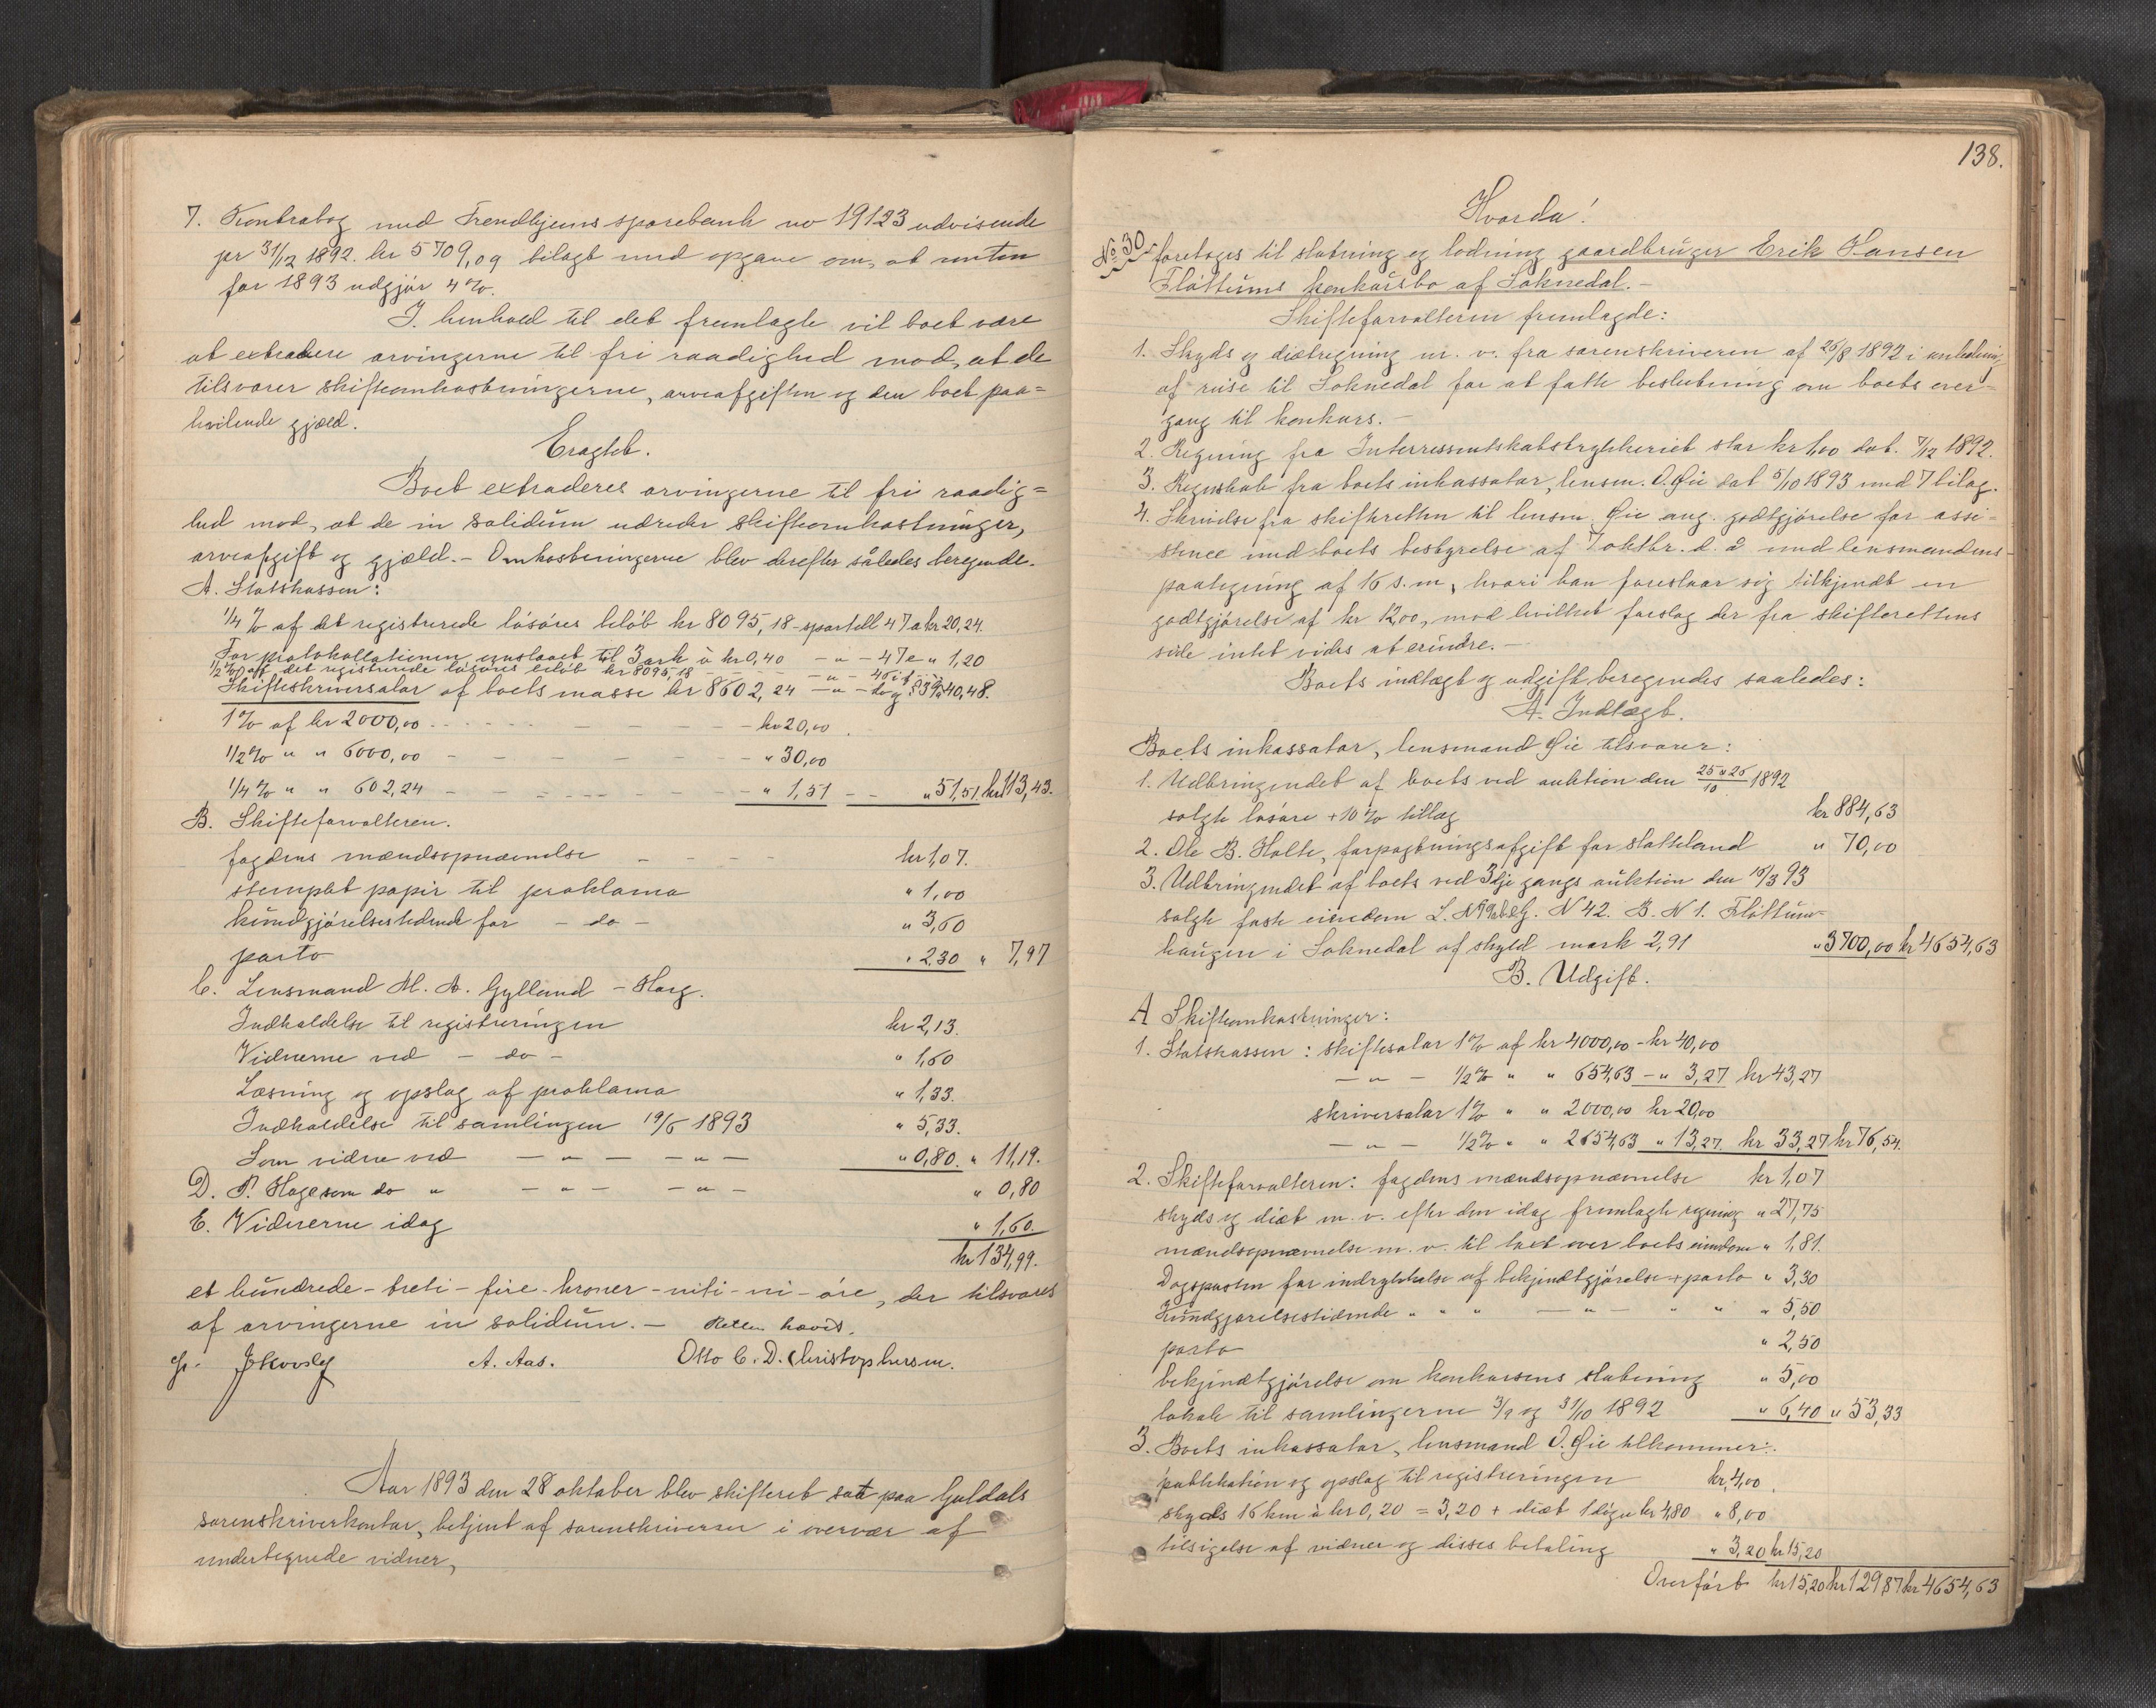 7. Kontrabog med Trondhjems sparebank no 19123 udvisende
pr 31/12 1892. kr 5709,09 bilagt med opgave om, at renten
for 1893 udgjør 4%.
I henhold til det fremlagte vil boet være
at extradere arvingerne til fri raadighed mod, at de
tilsvarer skifteomkostningerne, arveafgiften og den boet paa=
hvilende gjæld.
Eragtet.
Boet extraderes arvingerne til fri raadig=
hed mod, at de in solidum udreder skifteomkostninger,
arveafgift og gjæld.- Omkostningerne blev derefter således beregnede.
A. Statskassen:
1/4 % af det registrerede løsøres beløb kr 8095,18 - sportell 47a kr 20,24.
For protokollationen ansloet til 3 ark à kr 0,40 - " - 47e " 1,20
1/2 % af det registrerede løsøres beløb kr 8095,18 - " -
Skifteskriversalar af boets masse kr 8602,24 - " - 40,48.
1% af kr 2000,00 - kr 20,00
1/2% " " 6000,00 - " 30,00
1/4% " " 602,24 - " 1,51 - - " 51,51 kr 113,43.
B. Skifteforvalteren.
fogdens mændsopnævnelse kr 1,07.
stemplet papir til proklama " 1,00
kundgjørelsestidende for - do - " 3,60
porto " 2,30 " 7,97
C. Lensmand M. A. Gylland - Horg.
Indkaldelse til registreringen kr 2,13.
Vidnerne ved - do - " 1,60
Læsning og opslag af proklama " 1,33.
Indkaldelse til samlingen 19/5 1893 " 5,33.
Som vidne ved - " - - " - " 0,80. " 11,19.
D. P. Hage som do " - " - - " - " 0,80
E. Vidnerne idag " 1,60.
kr 134,99.
et hundrede - treti - fire - kroner - niti - ni - øre, der tilsvares
af arvingerne in solidum. - Retten hævet.
A. Aas. Otto C. D. Christophersen.
Aar 1893 den 28 oktober blev skifteret sat paa Guldals
sorenskriverkontor, betjent af sorenskriveren i overvær af
undertegnede vidner,
138.
Hvorda!
No 30 foretoges til slutning og lodning gaardbruger Erik Hansen
Fløttums konkursbo af Soknedal. -
Skifteforvalteren fremlagde:
1. Skyds og diætregning m. v. fra sorenskriveren af 26/8 1892 i anledning
af reise til Soknedal for at fatte beslutning om boets over=
gang til konkurs. -
2. Regning fra Interressentskabstrykkeriet stor kr 1,00 dat. 7/12 1892.
3. Regnskab fra boets inkassator, lensm. O. Øie dat 5/10 1893 med 7 bilag.
4. Skrivelse fra skifteretten til lensm. Øie ang. godtgjørelse for assi=
stence med boets bestyrelse af 7 oktbr. d. å med lensmandens
paategning af 16 s. m, hvori han foreslaar sig tilkjendt en
godtgjørelse af kr 12,00, mod hvilket forslag der fra skifterettens
side intet vides at erindre. -
Boets indtægt og udgift beregnedes saaledes:
A. Indtægt.
Boets inkassator, lensmand Øie tilsvarer:
1. Udbringendet af boets ved auktion den 25 & 26/10 1892
solgte løsøre + 10% tillæg kr 884,63
2. Ole B. Holte, forpagtningsafgift for slotteland " 70,00
3. Udbringendet af boets ved 3dje gangs auktion den 16/3 93
solgte faste eiendom L. N G. N 42. B. N 1. Fløttum=
haugen i Soknedal af skyld mark 2,91 " 3700,00 kr 4654,63
B. Udgift.
A Skifteomkostninger:
1. Statskassen: skiftesalar 1% af kr 4000,00 - kr 40,00
- " - 1/2% " " 654,63 - " 3,27 kr 43,27
skriversalar 1% " " 2000,00 kr 20,00
- " - 1/2% " " 2654,63 " 13,27 kr 33,27 kr 76,54.
2. Skifteforvalteren: fogdens mændsopnævnelse kr 1,07
skyds og diæt m. v. efter den idag fremlagte regning " 27,75
mændsopnævnelse m. v. til taxt over boets eiendom " 1,81.
Dagsposten for indrykkelse af bekjendtgjørelse + porto " 3,30
Kundgjørelsestidende " " " - " - " " " 5,50
porto " 2,50
bekjendtgjørelse om konkursens slutning " 5,00
lokale til samlingerne 3/9 og 31/10 1892 " 6,40 " 53,33
3. Boets inkassator, lensmand O. Øie tilkommer:
publikation og opslag til registreringen kr 4,00
skyds 16 km à kr 0,20 = 3,20 + diæt 1 døgn kr 4,80 " 8,00
tilsigelse af vidner og disses betaling " 3,20 kr 15,20
Overført kr 15,20 kr 129,87 kr 4654,63